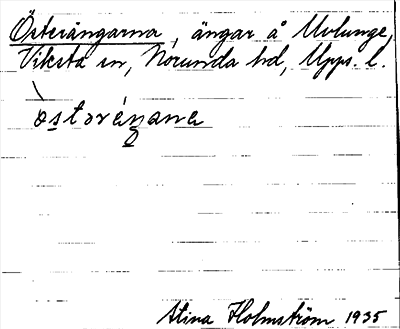 Österängarna, ängar å Uvlunge,
Viksta sn, Norunda hd, Upps. l.
òstərǽŋana
Stina Holmström 1935